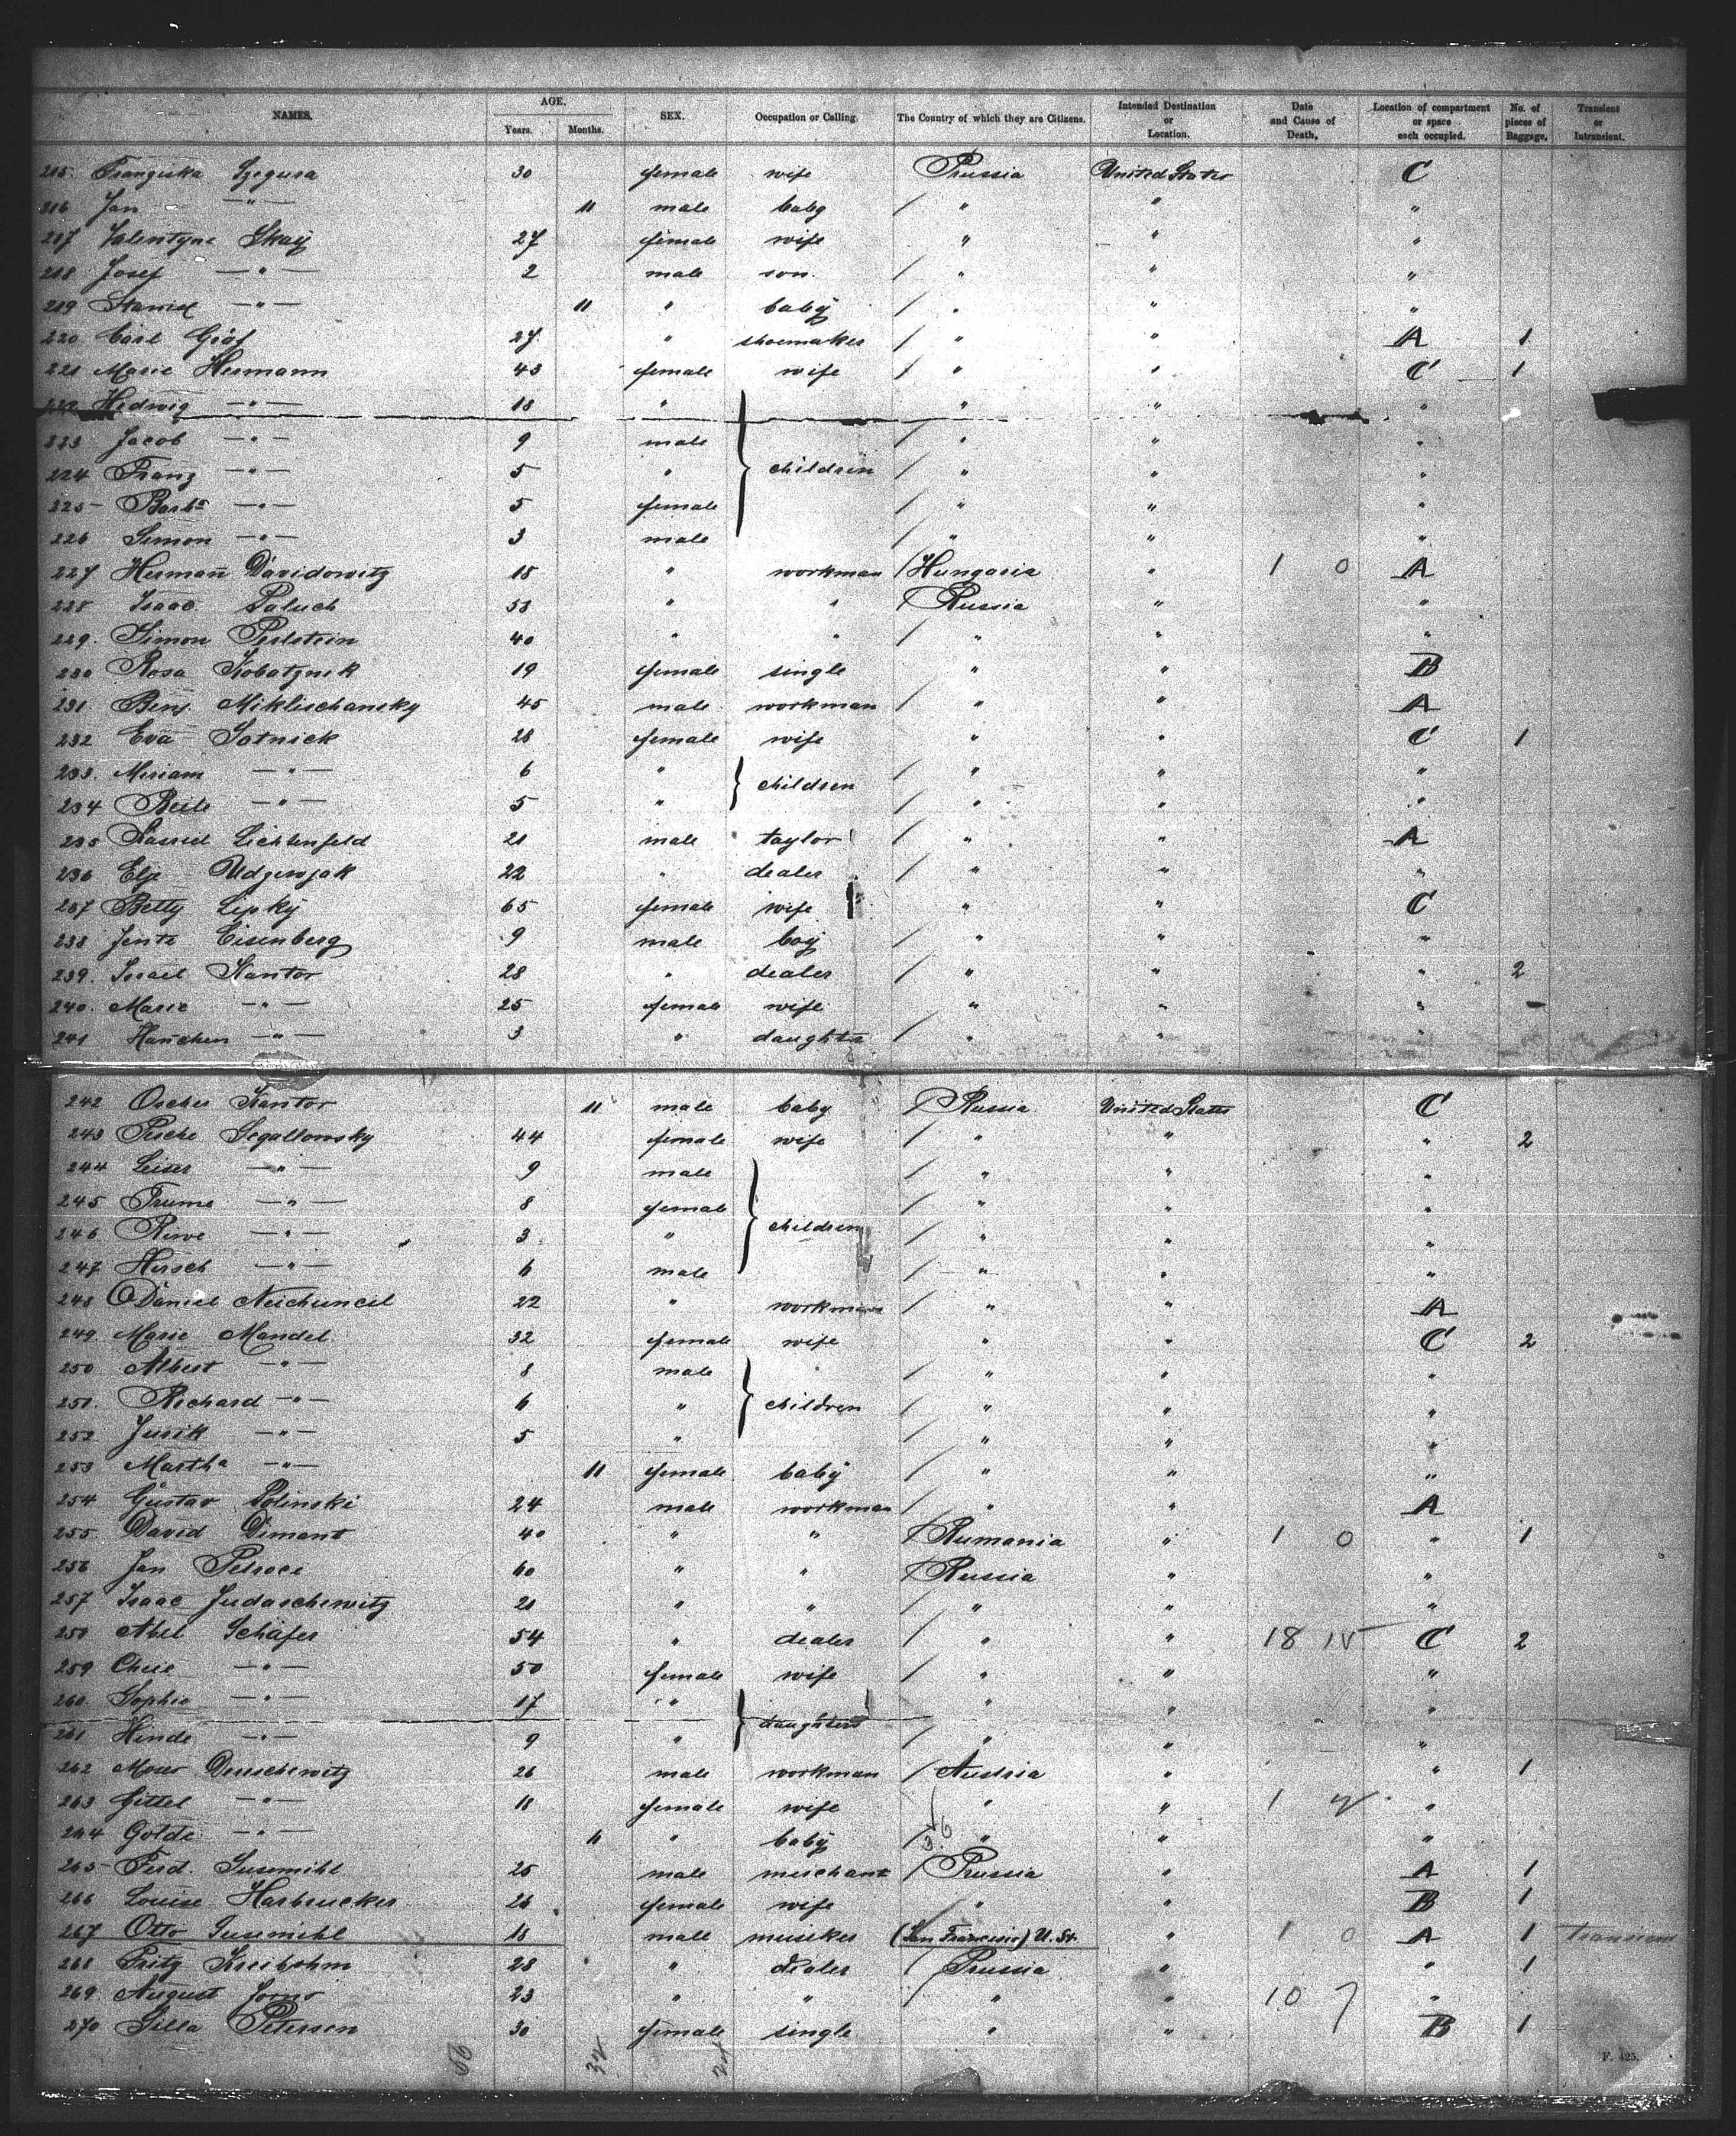 NAMES. AGE. SEX. Occupation or Calling. The Country of which they are Citizens. Intended Destination or Location. Date and Cause of Death. Location of compartment or space each occupied. No. of pieces of Baggage. Transient or Intransient.
Years. Months.
215 Franziska 30 female wife Prussia United States C
216 Jan —"— 11 male baby / " " "
217 Valentyne Skay 27 female wife " " "
218 Josef —"— 2 male son / " " "
219 —"— 11 " baby / " " "
220 Carl Gräf 27 " shoemaker / " " A 1
221 Marie Hermann 43 female wife / " " C 1
222 Hedwig —"— 18 " " " "
223 Jacob —"— 9 male / " " "
224 Franz —"— 5 " children / " " "
225 Barba —"— 5 female / " " "
226 Simon —"— 3 male / " " "
227 Hermañ Davidowitz 18 " workman / Hungaria " 1 0 A
228 Isaac Paluch 53 " " / Russia " "
229. Simon Perlstein 40 " " / " " "
230 Rosa Kobatznik 19 female single " " B
231 Benj. Miklischansky 45 male workman / " " A
232 Eva Sotnick 28 female wife " " C 1
233. Miriam —"— 6 " / " " "
234 Beile —"— 5 " children / " " "
235 Lichtenfeld 21 male taylor / " " A
236 Elje 22 " dealer / " " "
237 Betty Lipky 65 female wife " " C
238 Jente Eisenberg 9 male boy / " " "
239. Israel Kantor 28 " dealer / " " " 2
240. Marie —"— 25 female wife " " "
241 Hañchen —"— 3 " daughter / " " "
242 Oscher Kantor 11 male baby / Russia United States C
243 Pesche Segallowsky 44 female wife / " " " 2
244 Leiser —"— 9 male / " " "
245 Frume —"— 8 female / " " "
246 Riwe —"— 3 " children / " " "
247 Hirsch —"— 6 male / " " "
248 Daniel 22 " workman / " " A
249. Marie Mandel 32 female wife " " C 2
250 Albert —"— 8 male / " " "
251. Richard —"— 6 " children / " " "
252 —"— 5 " / " " "
253 Martha —"— 11 female baby / " " "
254 Gustav Polinski 24 male workman / " " A
255 David Dimant 40 " " / Rumania " 1 0 " 1
256 Jan 60 " " / Russia " "
257 Isaac Judaschewitz 21 " " / " " "
258 Abel Schäfer 54 " dealer / " " 18 15 C 2
259 —"— 50 female wife / " " "
260. Sophie —"— 17 " " " "
261 Hinde —"— 9 " daughters / " " "
262 26 male workman / Austria " " 1
263 Gittel —"— 18 female wife " " 1 "
264 Golde —"— 11 " baby / " " "
265 Ferd. Susemihl 25 male merchant / Prussia " A 1
266 Louise Harbrucker 26 female wife " " B 1
267 Otto Susemihl 18 male (San Francisco) U. St. " 1 0 A 1 transient
268 Fritz Kreibohm 28 " dealer / Prussia " " 1
269. August 23 " " / " " 10 7 "
270 Petersen 30 female single " " B 1
56 32 24
F. 425.